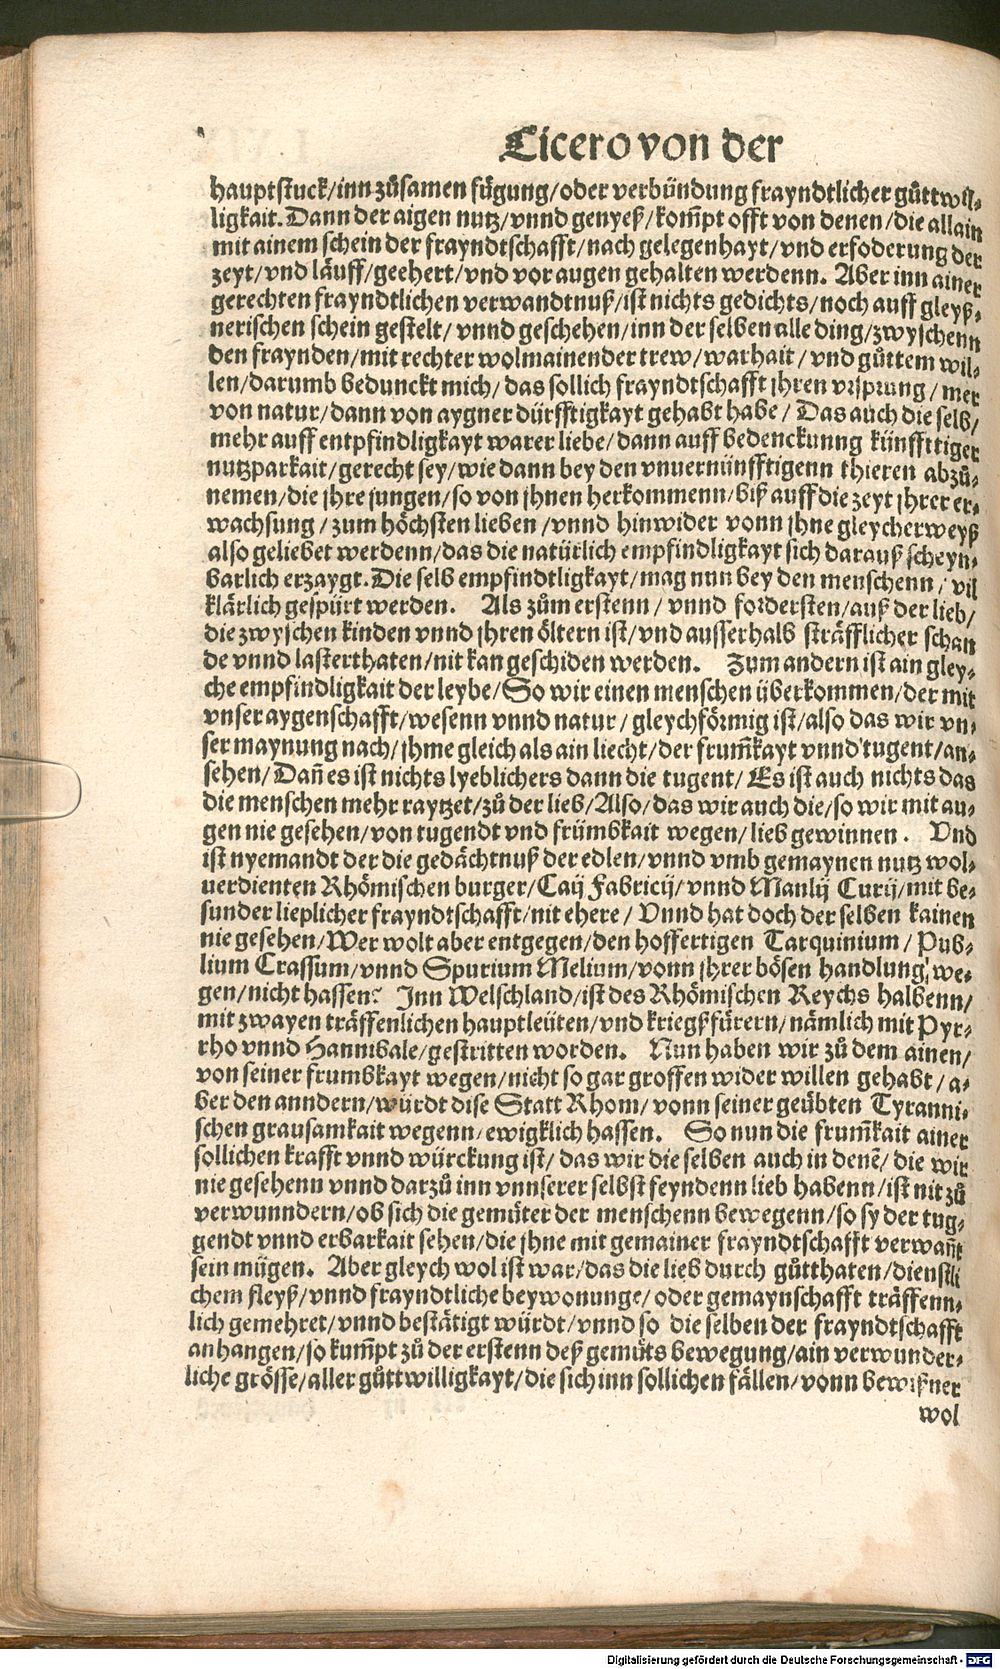 Cicero von der
hauptstuck/inn zůsamen fügung/oder verbündung frayndtlicher gůttwil⸗
ligkait. Dann der aigen nutz/vnnd genyeß/kompt offt von denen/die allain
mit ainem schein der frayndtschafft/nach gelegenhayt/vnd erfoderung der
zeyt/vnd läuff/geehert/vnd vor augen gehalten werdenn. Aber inn ainer
gerechten frayndtlichen verwandtnuß/ist nichts gedichts/noch auff gleyß⸗
nerischen schein gestelt/vnnd geschehen/inn der selben alle ding/zwyschenn
den fraynden/mit rechter wolmainender trew/warhait/vnd gůttem wil⸗
len/darumb bedunckt mich/das sollich frayndtschafft jhren vrsprung/mer
von natur/dann von aygner dürfftigkayt gehabt habe/Das auch die selb/
mehr auff entpfindligkayt warer liebe/dann auff bedenckunng künffttiger
nutzparkait/gerecht sey/wie dann bey den vnuernünfftigenn thieren abzů⸗
nemen/die jhre jungen/so von jhnen herkommenn/biß auff die zeyt jhrer er⸗
wachsung/zum höchsten lieben/vnnd hinwider vonn jhne gleycherweyß
also geliebet werdenn/das die natürlich empfindligkayt sich darauß scheyn⸗
barlich erzaygt. Die selb empfindtligkayt/mag nun bey den menschenn/vil
klärlich gespürt werden. Als zům erstenn/vnnd fordersten/auß der lieb/
die zwyschen kinden vnnd jhren öltern ist/vnd ausserhalb sträfflicher schan
de vnnd lasterthaten/nit kan geschiden werden. Zum andern ist ain gley⸗
che empfindligkait der leybe/So wir einen menschen überkommen/der mit
vnser aygenschafft/wesenn vnnd natur/gleychförmig ist/also das wir vn⸗
ser maynung nach/jhme gleich als ain liecht/der frum̃kayt vnnd tugent/an⸗
sehen/Dañ es ist nichts lyeblichers dann die tugent/Es ist auch nichts das
die menschen mehr raytzet/zů der lieb/Also/das wir auch die/so wir mit au⸗
gen nie gesehen/von tugendt vnd frümbkait wegen/lieb gewinnen. Vnd
ist nyemandt der die gedächtnuß der edlen/vnnd vmb gemaynen nutz wol⸗
uerdienten Rhömischen burger/Caij Fabricij/vnnd Manlij Curij/mit be⸗
sunder lieplicher frayndtschafft/nit ehere/Vnnd hat doch der selben kainen
nie gesehen/Wer wolt aber entgegen/den hoffertigen Tarquinium/Pub⸗
lium Crassum/vnnd Spurium Melium/vonn jhrer bösen handlung we⸗
gen/nicht hassen? Inn Welschland/ist des Rhömischen Reychs halbenn/
mit zwayen träffenlichen hauptleüten/vnd kriegßfürern/nämlich mit Pyr⸗
rho vnnd Hannibale/gestritten worden. Nun haben wir zů dem ainen/
von seiner frumbkayt wegen/nicht so gar grossen wider willen gehabt/a⸗
ber den anndern/würdt dise Statt Rhom/vonn seiner geübten Tyranni⸗
schen grausamkait wegenn/ewigklich hassen. So nun die frum̃kait ainer
sollichen krafft vnnd würckung ist/das wir die selben auch in denẽ/die wir
nie gesehenn vnnd darzů inn vnnserer selbst feyndenn lieb habenn/ist nit zů
verwunndern/ob sich die gemüter der menschenn bewegenn/so sy der tug⸗
gendt vnnd erbarkait sehen/die jhne mit gemainer frayndtschafft verwañt
sein mügen. Aber gleych wol ist war/das die lieb durch gůtthaten/dienstli
chem fleyß/vnnd frayndtliche beywonunge/oder gemaynschafft träffenn⸗
lich gemehret/vnnd bestätigt würdt/vnnd so die selben der frayndtschafft
anhangen/so kumpt zů der erstenn deß gemüts bewegung/ain verwunder⸗
liche grösse/aller gůttwilligkayt/die sich inn sollichen fällen/vonn bewißner
wol
Digitalisierung gefördert durch die Deutsche Forschungsgemeinschaft - DFG